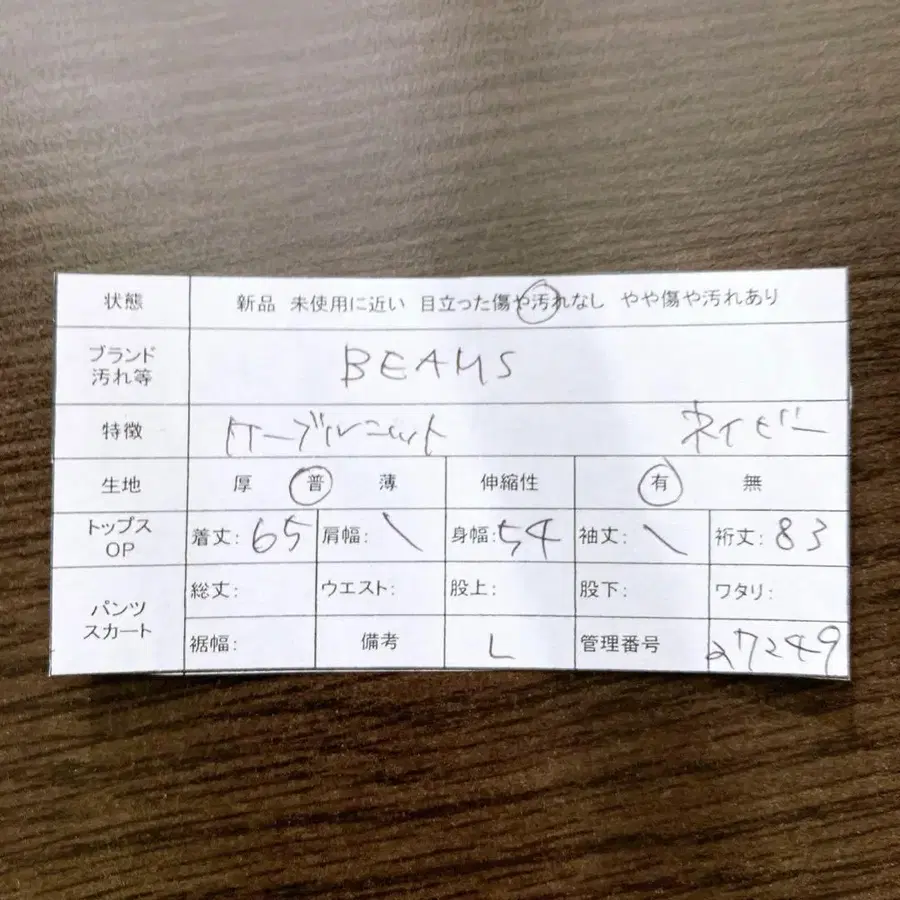 状態 新品 未使用に近い 目立った傷や汚れなし やや傷や汚れあり
ブランド
汚れ等 BEAMS
特徴 ケーブルニット ネイビー
生地 厚 普 薄 伸縮性 有 無
トップス
OP 着丈: 65 肩幅: \ 身幅: 54 袖丈: \ 裄丈: 83
パンツ
スカート 総丈: ウエスト: 股上: 股下: ワタリ:
裾幅: 備考 L 管理番号 27249